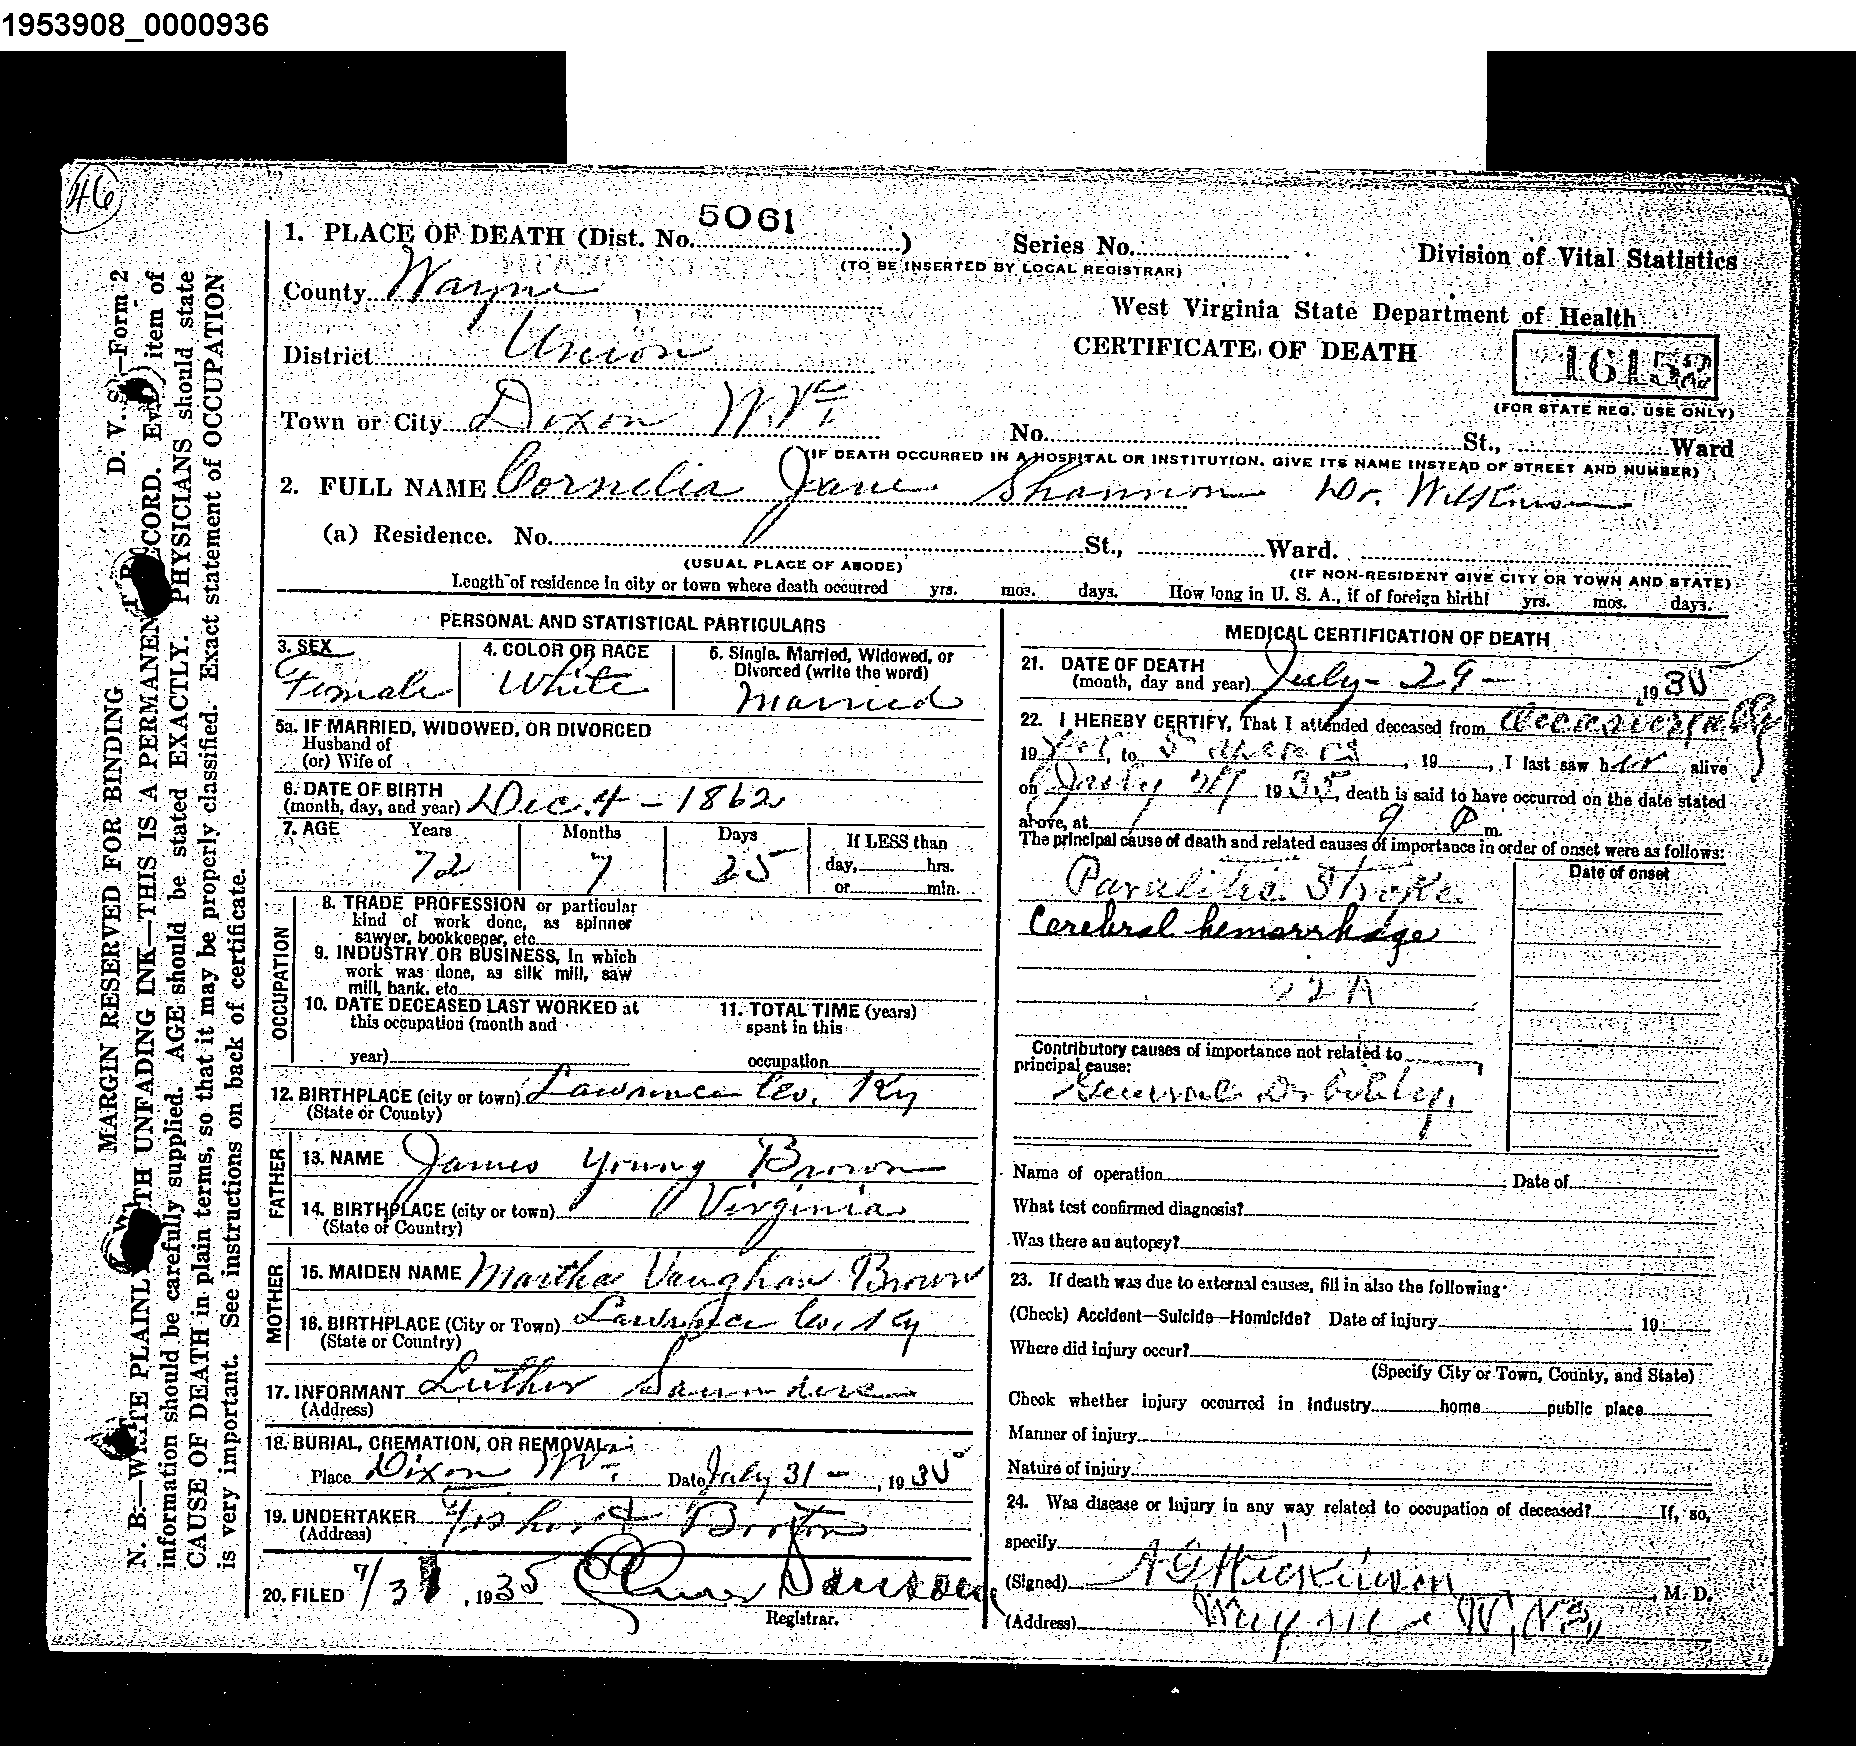 1953908_0000936
46
5061
1. PLACE OF DEATH (Dist. No. ) Series No. Division of Vital Statistics
(TO BE INSERTED BY LOCAL REGISTRAR)
County Wayne
West Virginia State Department of Health
District Union
CERTIFICATE OF DEATH
16152
(FOR STATE REG. USE ONLY)
Town or City Dixon W.Va.
No. St., Ward
(IF DEATH OCCURRED IN A HOSPITAL OR INSTITUTION, GIVE ITS NAME INSTEAD OF STREET AND NUMBER)
2. FULL NAME Cornelia Jane Shannon Dr.
(a) Residence. No. St., Ward.
(USUAL PLACE OF ABODE) (IF NON-RESIDENT GIVE CITY OR TOWN AND STATE)
Length of residence in city or town where death occurred yrs. mos. days. How long in U. S. A., if of foreign birth? yrs. mos. days.
PERSONAL AND STATISTICAL PARTICULARS
3. SEX
Female
4. COLOR OR RACE
White
5. Single, Married, Widowed, or
Divorced (write the word)
Married
5a. IF MARRIED, WIDOWED, OR DIVORCED
Husband of
(or) Wife of
6. DATE OF BIRTH
(month, day, and year) Dec. 4 - 1862
7. AGE Years Months Days If LESS than
72 7 25 day, hrs.
or min.
OCCUPATION
8. TRADE PROFESSION or particular
kind of work done, as spinner
sawyer, bookkeeper, etc.
9. INDUSTRY OR BUSINESS, in which
work was done, as silk mill, saw
mill, bank, etc.
10. DATE DECEASED LAST WORKED at
this occupation (month and
year)
11. TOTAL TIME (years)
spent in this
occupation
12. BIRTHPLACE (city or town) Lawrence Co. Ky
(State or County)
FATHER
13. NAME James Young Brown
14. BIRTHPLACE (city or town) Virginia
(State of Country)
MOTHER
15. MAIDEN NAME Martha Vaughan Brown
16. BIRTHPLACE (City or Town) Lawrence Co. Ky
(State or Country)
17. INFORMANT Luther Saunders
(Address)
18. BURIAL, CREMATION, OR REMOVAL
Place Dixon W Date July 31 - , 1935
19. UNDERTAKER
(Address)
20. FILED 7/31 , 1935
Registrar.
MEDICAL CERTIFICATION OF DEATH
21. DATE OF DEATH
(month, day and year) July - 29 - 1935
22. I HEREBY CERTIFY, That I attended deceased from occasionally
19 for, to 5 years , 19 , I last saw her alive
on July 1935, death is said to have occurred on the date stated
above, at 9 P m.
The principal cause of death and related causes of importance in order of onset were as follows:
Date of onset
Paralitic Stroke.
Cerebral hemorrhage
Contributory causes of importance not related to
principal cause:
General Debility.
Name of operation Date of
What test confirmed diagnosis?
Was there an autopsy?
23. If death was due to external causes, fill in also the following:
(Check) Accident—Suicide—Homicide? Date of injury 19
Where did injury occur?
(Specify City or Town, County, and State)
Check whether injury occurred in industry home public place
Manner of injury
Nature of injury
24. Was disease or injury in any way related to occupation of deceased? If, so,
specify
(Signed) , M. D.
(Address) Wayne W. Va.
D. V. S.—Form 2
MARGIN RESERVED FOR BINDING
N. B.—WRITE PLAINLY WITH UNFADING INK—THIS IS A PERMANENT RECORD. Every item of
information should be carefully supplied. AGE should be stated EXACTLY. PHYSICIANS should state
CAUSE OF DEATH in plain terms, so that it may be properly classified. Exact statement of OCCUPATION
is very important. See instructions on back of certificate.